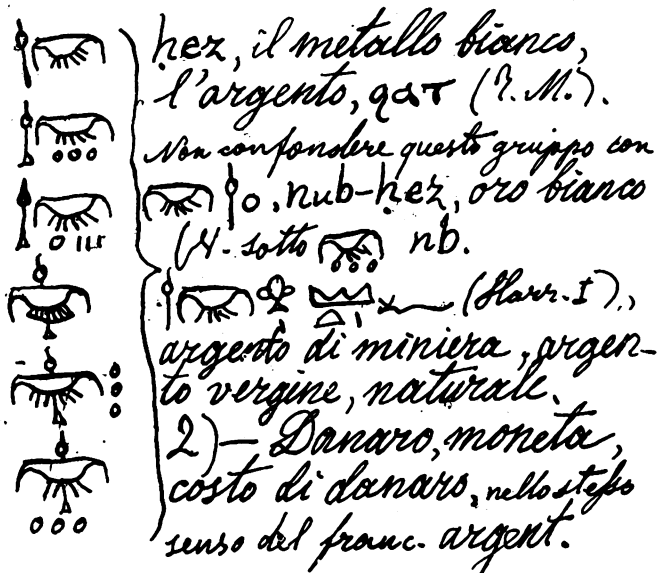 ḥez, il metallo bianco,
l'argento, ϩⲁⲧ (T. M.).
Non confondere questo gruppo con
nub-ḥez, oro bianco
(V. sotto nb.
(Harr. I).,
argento di miniera, argen-
to vergine, naturale.
2)— Danaro, moneta,
costo di danaro, nello stesso
senso del franc. argent.